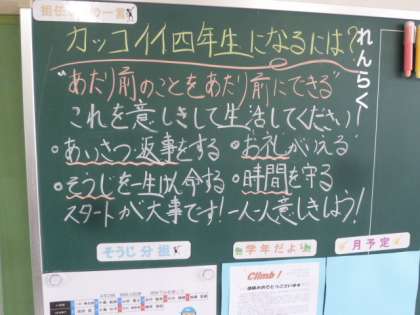 担任 の一言
カッコイイ四年生になるには?
"あたり前のことをあたり前にできる"
これを意しきして生活してください!
・あいさつ・返事をする ・お礼がいえる
・そうじを一生けん命する ・時間を守る
スタートが大事です!一人一人意しきしよう!
れんらく
そうじ分担
学年だより
月予定
Climb!